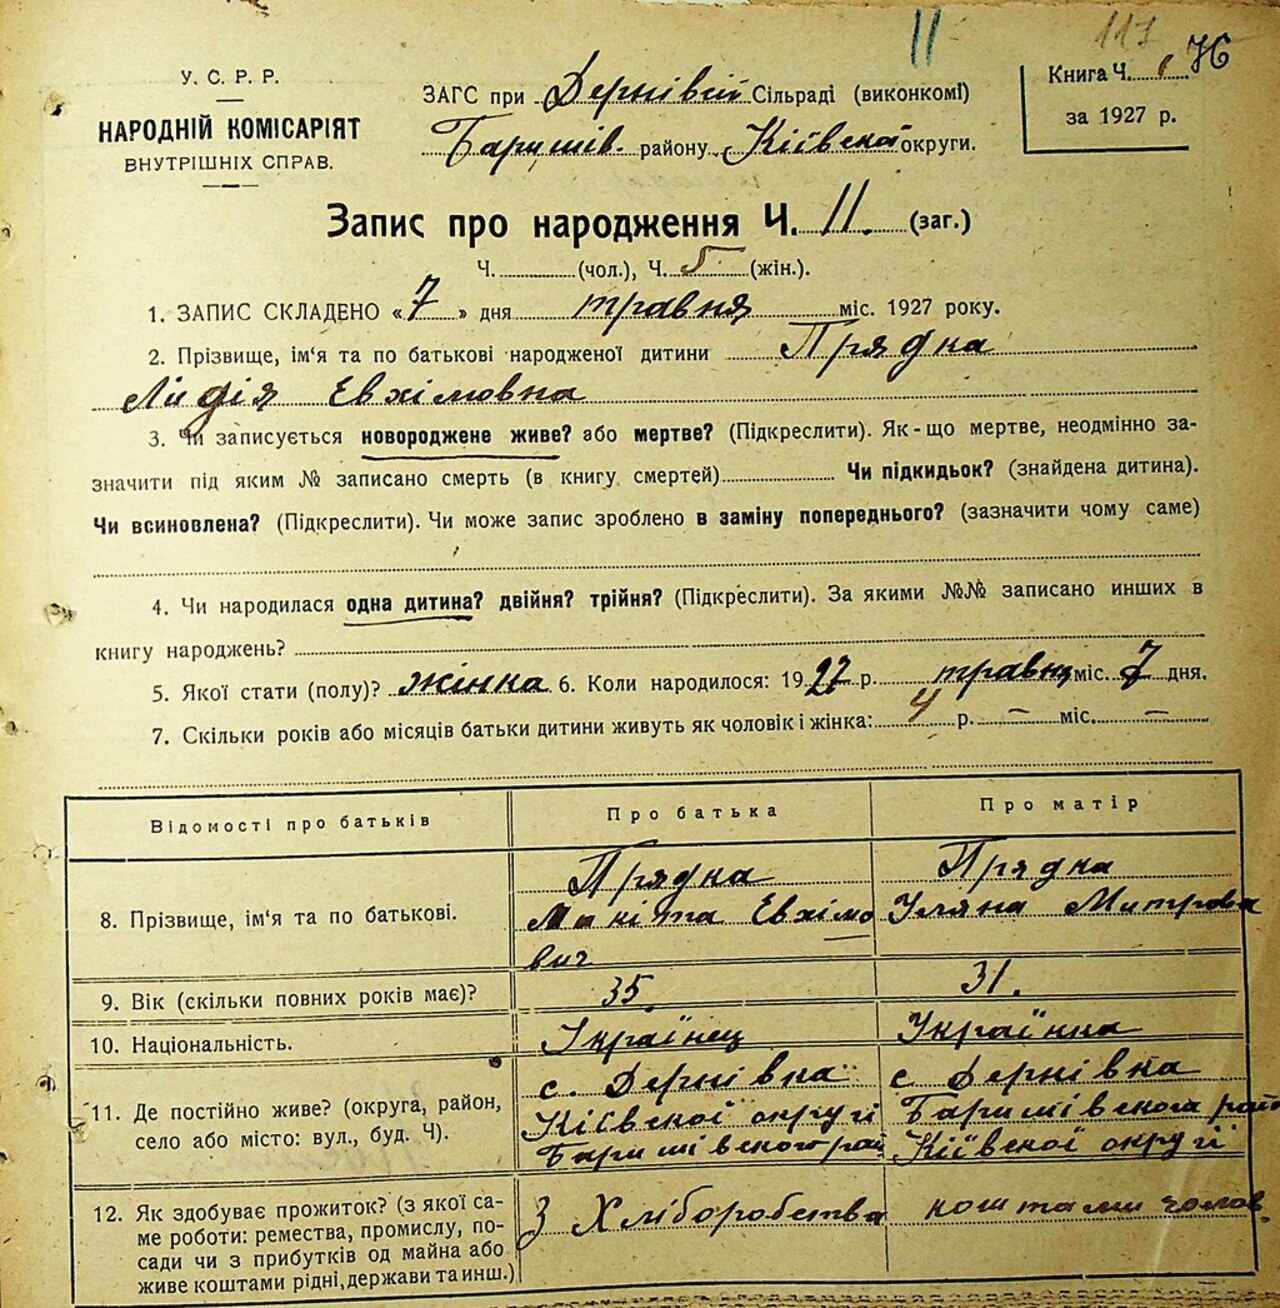 11 117 76
У. С. Р. Р.
НАРОДНІЙ КОМІСАРІЯТ
ВНУТРІШНІХ СПРАВ.
ЗАГС при Дернівскій Сільраді (виконкомі)
Баришів. району, Київскої округи.
Книга Ч.
за 1927 р.
Запис про народження Ч. 11. (заг.)
Ч. (чол.), Ч. 5 (жін.).
1. ЗАПИС СКЛАДЕНО «7» дня травня міс. 1927 року.
2. Прізвище, ім'я та по батькові народженої дитини Прядка
Лидія Евхімовна
3. Чи записується новороджене живе? або мертве? (Підкреслити). Як-що мертве, неодмінно за-
значити під яким № записано смерть (в книгу смертей) Чи підкидьок? (знайдена дитина).
Чи всиновлена? (Підкреслити). Чи може запис зроблено в заміну попереднього? (зазначити чому саме)
4. Чи народилася одна дитина? двійня? трійня? (Підкреслити). За якими №№ записано инших в
книгу народжень?
5. Якої стати (полу)? жінка 6. Коли народилося: 1927 р. травня міс. 7 дня.
7. Скільки років або місяців батьки дитини живуть як чоловік і жінка: 4 р. — міс. —
Відомості про батьків Про батька Про матір
8. Прізвище, ім'я та по батькові. Прядка Микіта Евхімо вич Прядка Уляна Митрова
9. Вік (скільки повних років має)? 35. 31.
10. Національність. Українец Українка
11. Де постійно живе? (округа, район,
село або місто: вул., буд. Ч).
с. Дернівка
Київскої округі
Баришівского рай
с Дернівка
Баришівского рай
Київскої округі
12. Як здобуває прожиток? (з якої са-
ме роботи: ремества, промислу, по-
сади чи з прибутків од майна або
живе коштами рідні, держави та инш.)
З Хліборобства
коштами чолов.